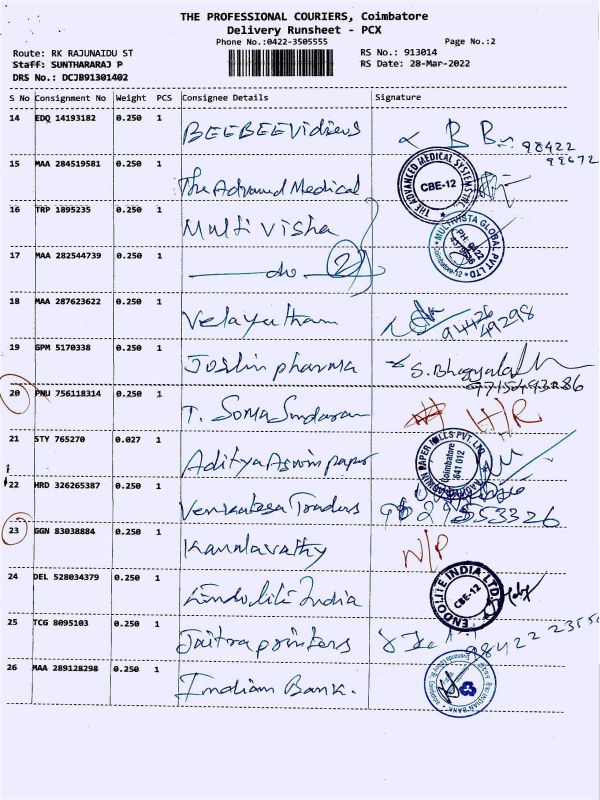 THE PROFESSIONAL COURIERS, Coimbatore
Delivery Runsheet - PCX
Phone No.:0422-3505555 Page No.:2
Route: RK RAJUNAIDU ST RS No.: 913014
Staff: SUNTHARARAJ P RS Date: 28-Mar-2022
DRS No.: DCJB91301402
S No Consignment No Weight PCS Consignee Details Signature
14 EDQ 14193182 0.250 1
BEEBEE Vidieus B B 98422
99672
15 MAA 284519581 0.250 1
The Advanced Medical THE ADVANCED MEDICAL SYSTEMS CBE-12
16 TRP 1895235 0.250 1
Multi Visha MULTIVISTA GLOBAL PVT LTD PH: 0422 Coimbatore-12
17 MAA 282544739 0.250 1
do 2
18 MAA 287623622 0.250 1
Velayutham 94426
49298
19 GPM 5170338 0.250 1
Joslin pharma S. Bhagyala
20 PNU 756118314 0.250 1
T. Soma Sundaram H/R
21 STY 765270 0.027 1
Aditya Aswin paper ASWIN PAPER MILLS PVT. LTD. Coimbatore 641 012
22 HRD 326265387 0.250 1
Venkatesa Traders
23 GGN 83038884 0.250 1
Kamalavathy N/P
24 DEL 528034379 0.250 1
Endolite India ENDOLITE INDIA LTD. CBE-12
25 TCG 8095103 0.250 1
Jaitra printers 98422 23550
26 MAA 289128298 0.250 1
Indian Bank. INDIAN BANK